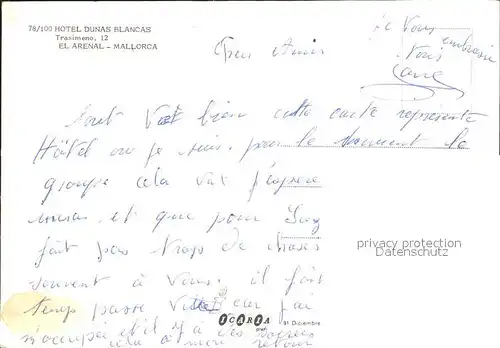 78/100 HOTEL DUNAS BLANCAS
Trasimeno, 12
EL ARENAL - MALLORCA
Je Vous
embrasse
Tous
Chers Amis
tout Vat bien cette carte représente
Hôtel ou je suis. pour le moment le
groupe cela vat j'espère
et que pour
fait pas trops de choses
souvent à Vous. il fait
temps passe car j'ai
m'occupée et il y a des soirées
cela à mon retour
privacy protection
Datenschutz
ICARIA
31 Diciembre